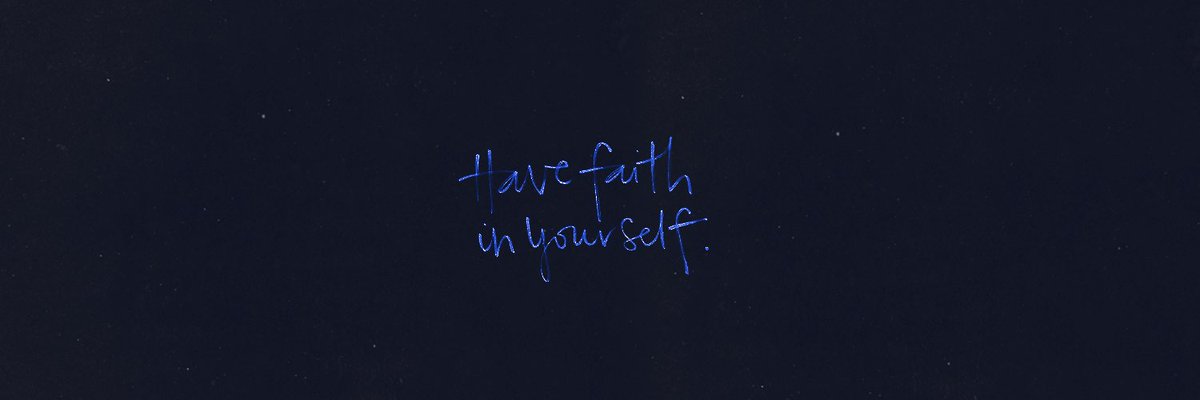 Have faith
in yourself.